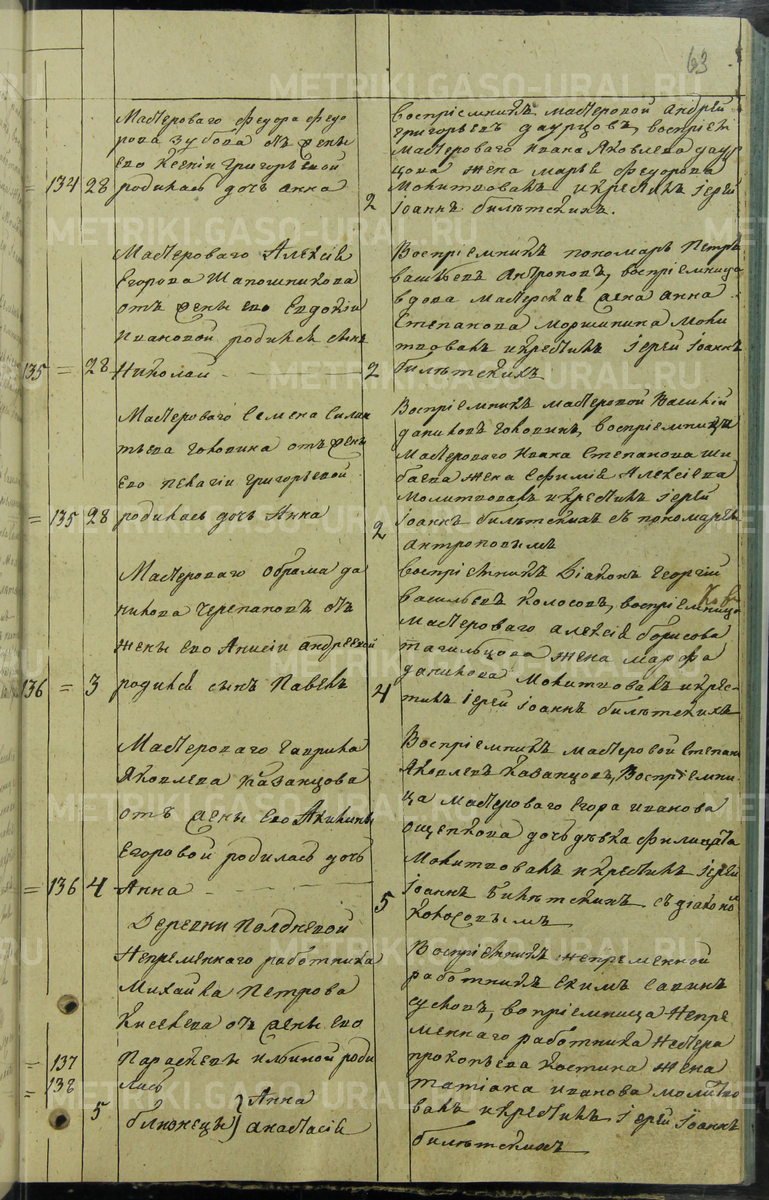 63
Мастероваго Федора Федо
рова Зубова отъ жены
его Ксенiи Григорьевой
= 134 28 родилась дочь Анна
Воспрiемникъ мастеровой Андрей
Григорьевъ Даурцовъ, воспрiем
мастероваго Ивана Яковлева Даур
цова жена Марья Федорова
2 Молитвовалъ и крестилъ Iерей
Iоаннъ Билѣтскихъ.
Мастероваго Алексiя
Егорова Шапошникова
отъ жены его Евдокiи
Ивановой родился сынъ
135 = 28 Николай
Воспрiемникъ пономарь Петръ
Васильевъ Антроповъ, воспрiемница
вдова мастерская жена Анна
Степанова Моршинина Моли
твовалъ и крестилъ Iерей Iоаннъ
2 Билѣтскихъ
Мастероваго Семена Силан
тьева Головина отъ жены
его Пелагiи Григорьевой
= 135 28 родилась дочь Анна
Воспрiемникъ мастеровой Василiй
Даниловъ Головинъ, воспрiемница
Мастероваго Ивана Степанова Ши
баева жена Ефимiя Алексiева
Молитвовалъ и крестилъ Iерей
2 Iоаннъ Билѣтскихъ съ пономаремъ
Антроповымъ
Мастероваго Обрама Да
нилова Черепановъ отъ
жены его Анисiи Андреевой
136 = 3 родился сынъ Павелъ
Воспрiемникъ Дiаконъ Георгiй
Васильевъ Колосовъ, воспрiемница
Мастероваго Алексiя Борисова
Тагильцова жена Марфа
Данилова Молитвовалъ и крес-
4 тилъ Iерей Iоаннъ Билѣтскихъ
Мастероваго Гаврила
Яковлева Казанцова
отъ жены его Акилины
Егоровой родилась дочь
= 136 4 Анна
Воспрiемникъ мастеровой Степанъ
Яковлевъ Казанцовъ, Воспрiемни-
ца Мастероваго Егора Иванова
Ощепкова дочь дѣвка Филицата
Молитвовалъ и крестилъ Iерей
5 Iоаннъ Билѣтскихъ съ дiакономъ
Колосовымъ
Деревни Полдневой
Непременнаго работника
Михайла Петрова
Киселева отъ жены его
= 137 Параскевы Ильиной роди
= 138 лись
5 близнецы } Анна
Анастасiя
Воспрiемникъ непременной
работникъ Екимъ Савинъ
Сусловъ, вопрiемница Непре
меннаго работника Нестера
Прокопьева Костина жена
Татiана Иванова молитво
валъ и крестилъ Iерей Iоаннъ
Билѣтскихъ
METRIKI.GASO-URAL.RU